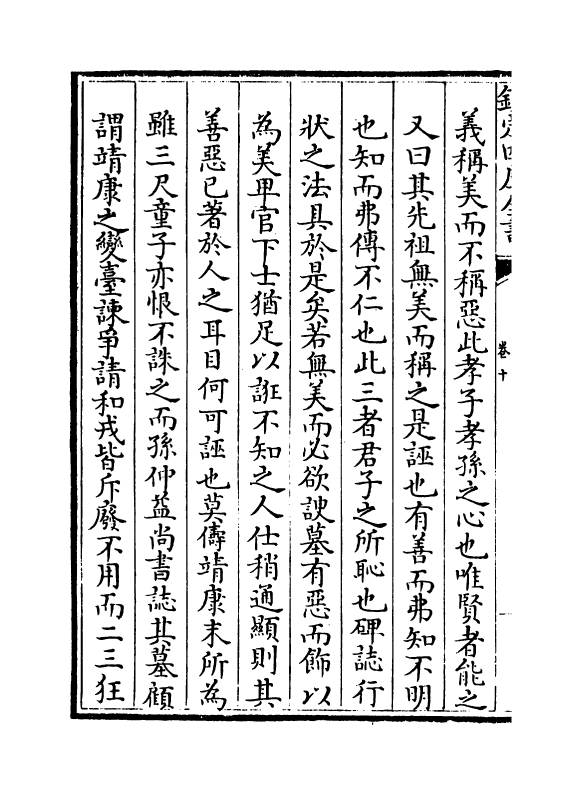 欽定四庫全書
卷十
義稱美而不稱惡此孝子孝孫之心也唯賢者能之
又曰其先祖無美而稱之是誣也有善而弗知不明
也知而弗傳不仁也此三者君子之所恥也碑誌行
狀之法具於是矣若無美而必欲諛墓有惡而飾以
為美卑官下士猶足以誑不知之人仕稍通顯則其
善惡已著於人之耳目何可誣也莫儔靖康末所為
雖三尺童子亦恨不誅之而孫仲益尚書誌其墓顧
謂靖康之變臺諫爭請和戎皆斥廢不用而二三狂